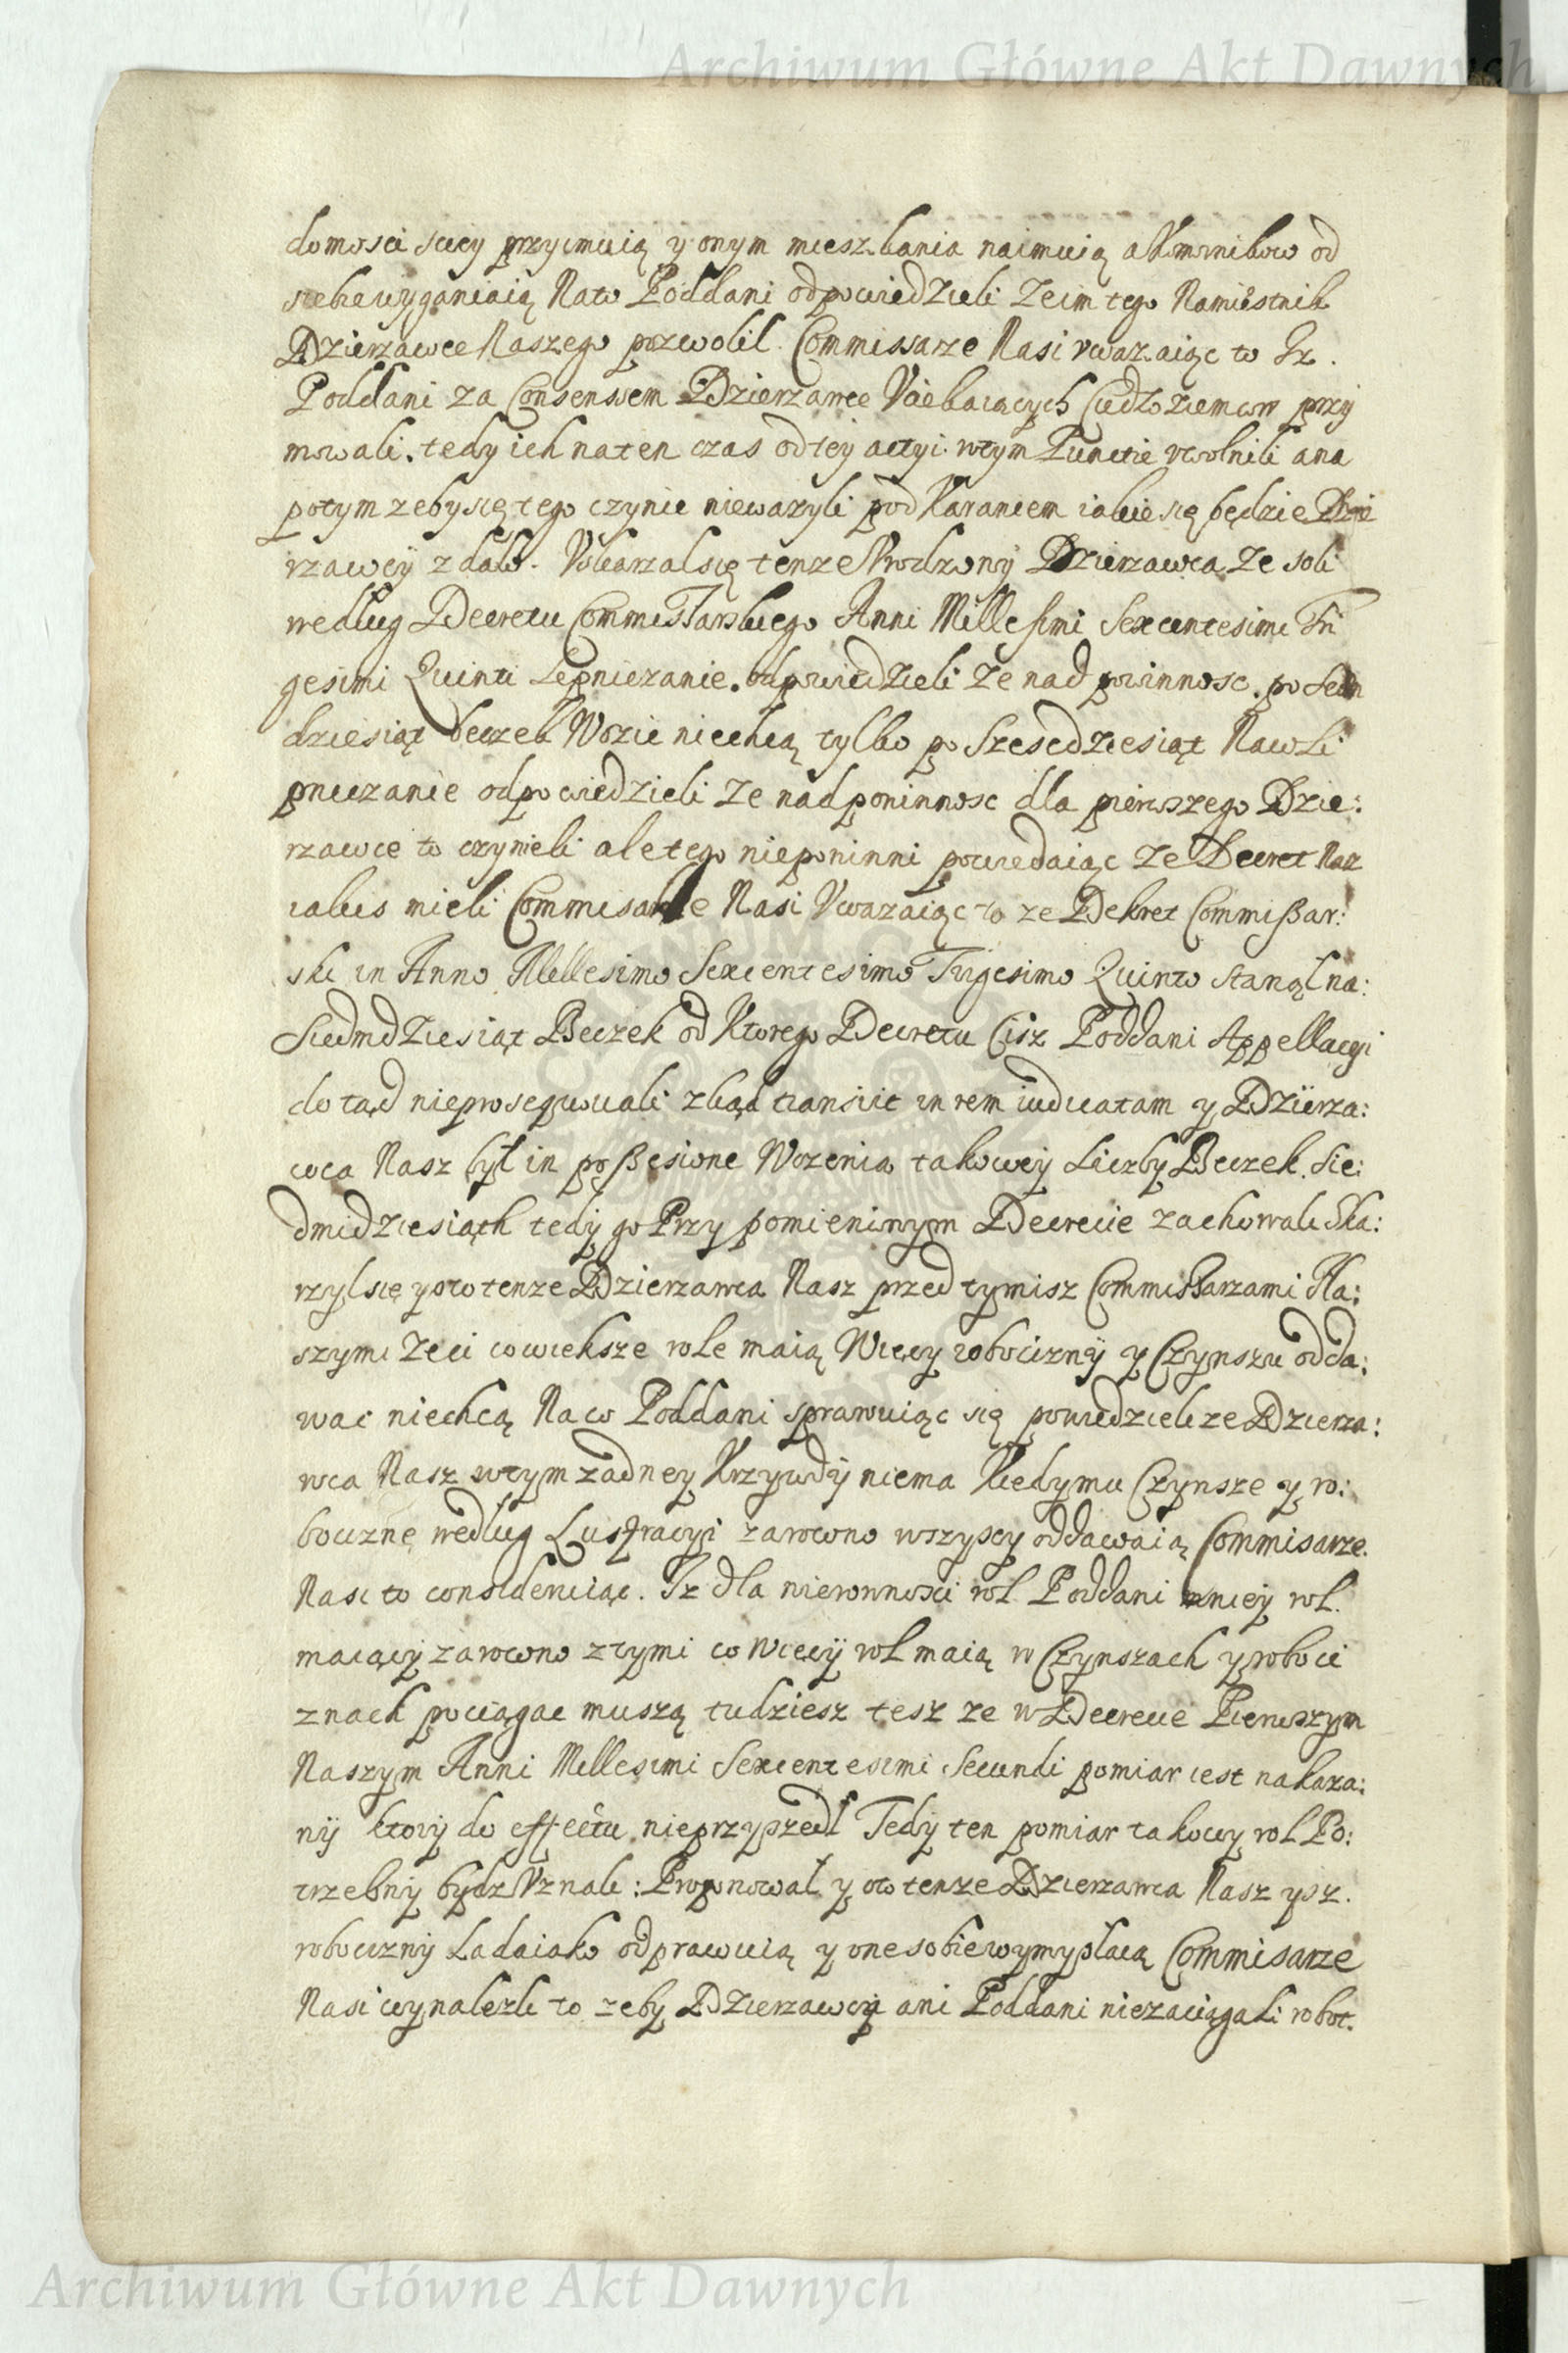 Archiwum Główne Akt Dawnych
domosci sucy przyimuią y onym mieszkania naimuią a Komornikow od
siebie wyganiaią Nato Poddani odpowiedzieli Ze im tego Namiestnik
Dzierzawce Naszego pozwolil. Commissarze Nasi vwazaiąc to Iz.
Poddani za Consensem Dzierzawce Vciekaiących Cudzoziemcow przy
mowali. tedy ich naten czas od tey actyi. wtym Puncie vwolnili ana
potym zeby się tego czynic niewazyli pod Karaniem iakie się będzie Dzie
rzawcy zdało. Vskarzal się tenze Vrodzony Dzierzawca Ze soli
wedlug Decretu Commissarskiego Anni Millesimi Sexcentesimi Tri
gesimi Quinti Lepniczanie. odpowiedzieli Ze nad powinnosc. po Sedm
dziesiąt beczek Wozic niechcą tylko po Szescdziesiąt Nawli
pniczanie odpowiedzieli Ze nad poninnosc dla pierwszego Dzie:
rzawce to czynieli ale tego nieponinni powiedaiąc Ze Decret Naz
iakis mieli Commisarze Nasi Vwazaiąc to ze Dekret Commißar:
ski in Anno Millesimo Sexcentesimo Trigesimo Quinto Stanął na:
Siedmdziesiąt Beczek od Ktorego Decretu Cisz Poddani Appellacyi
do tąd nieprosequowali zkąd transiit in rem iudicatam y Dzierza:
wca Nasz był in poßesione Wozenia takowey Liczby Beczek. Sie:
dmidziesiąth tedy go Przy pomieninym Decrecie zachowali Ska:
rzyl się y oto tenze Dzierzawca Nasz przed tymisz Commissarzami Na:
szymi Ze ci co wieksze role maią Wiecy robocizny y Czynszu odda:
wac niechcą Naco Poddani sprawuiąc się powiedzieli ze Dzierza:
wca Nasz wtym zadney Krzywdy niema Kiedy mu Czynsze y ro:
boczne wedlug Lustracyi zarowno wszyscy oddawaią Commisarze.
Nasi to consideruiąc. Iz dla nierownosci rol Poddani mniey rol.
maiący zarowno z tymi co Wiecy rol maią w Czynszach y roboci
znach pociągac muszą tudziesz tesz ze w Decrecie Pierwszym
Naszym Anni Millesimi Sexcentesimi Secundi pomiar iest nakaza:
ny ktory do effectu nieprzyszedl Tedy ten pomiar takowy rol Po:
trzebny bydz Vznali: Proponowal y oto tenze Dzierzawca Nasz ysz.
robocizny Ladaiako odprawuią y one sobie wymyslaią Commisarze
Nasi wynalezli to zeby Dzierzawcy ani Poddani niezaciągali robot.
Archiwum Główne Akt Dawnych